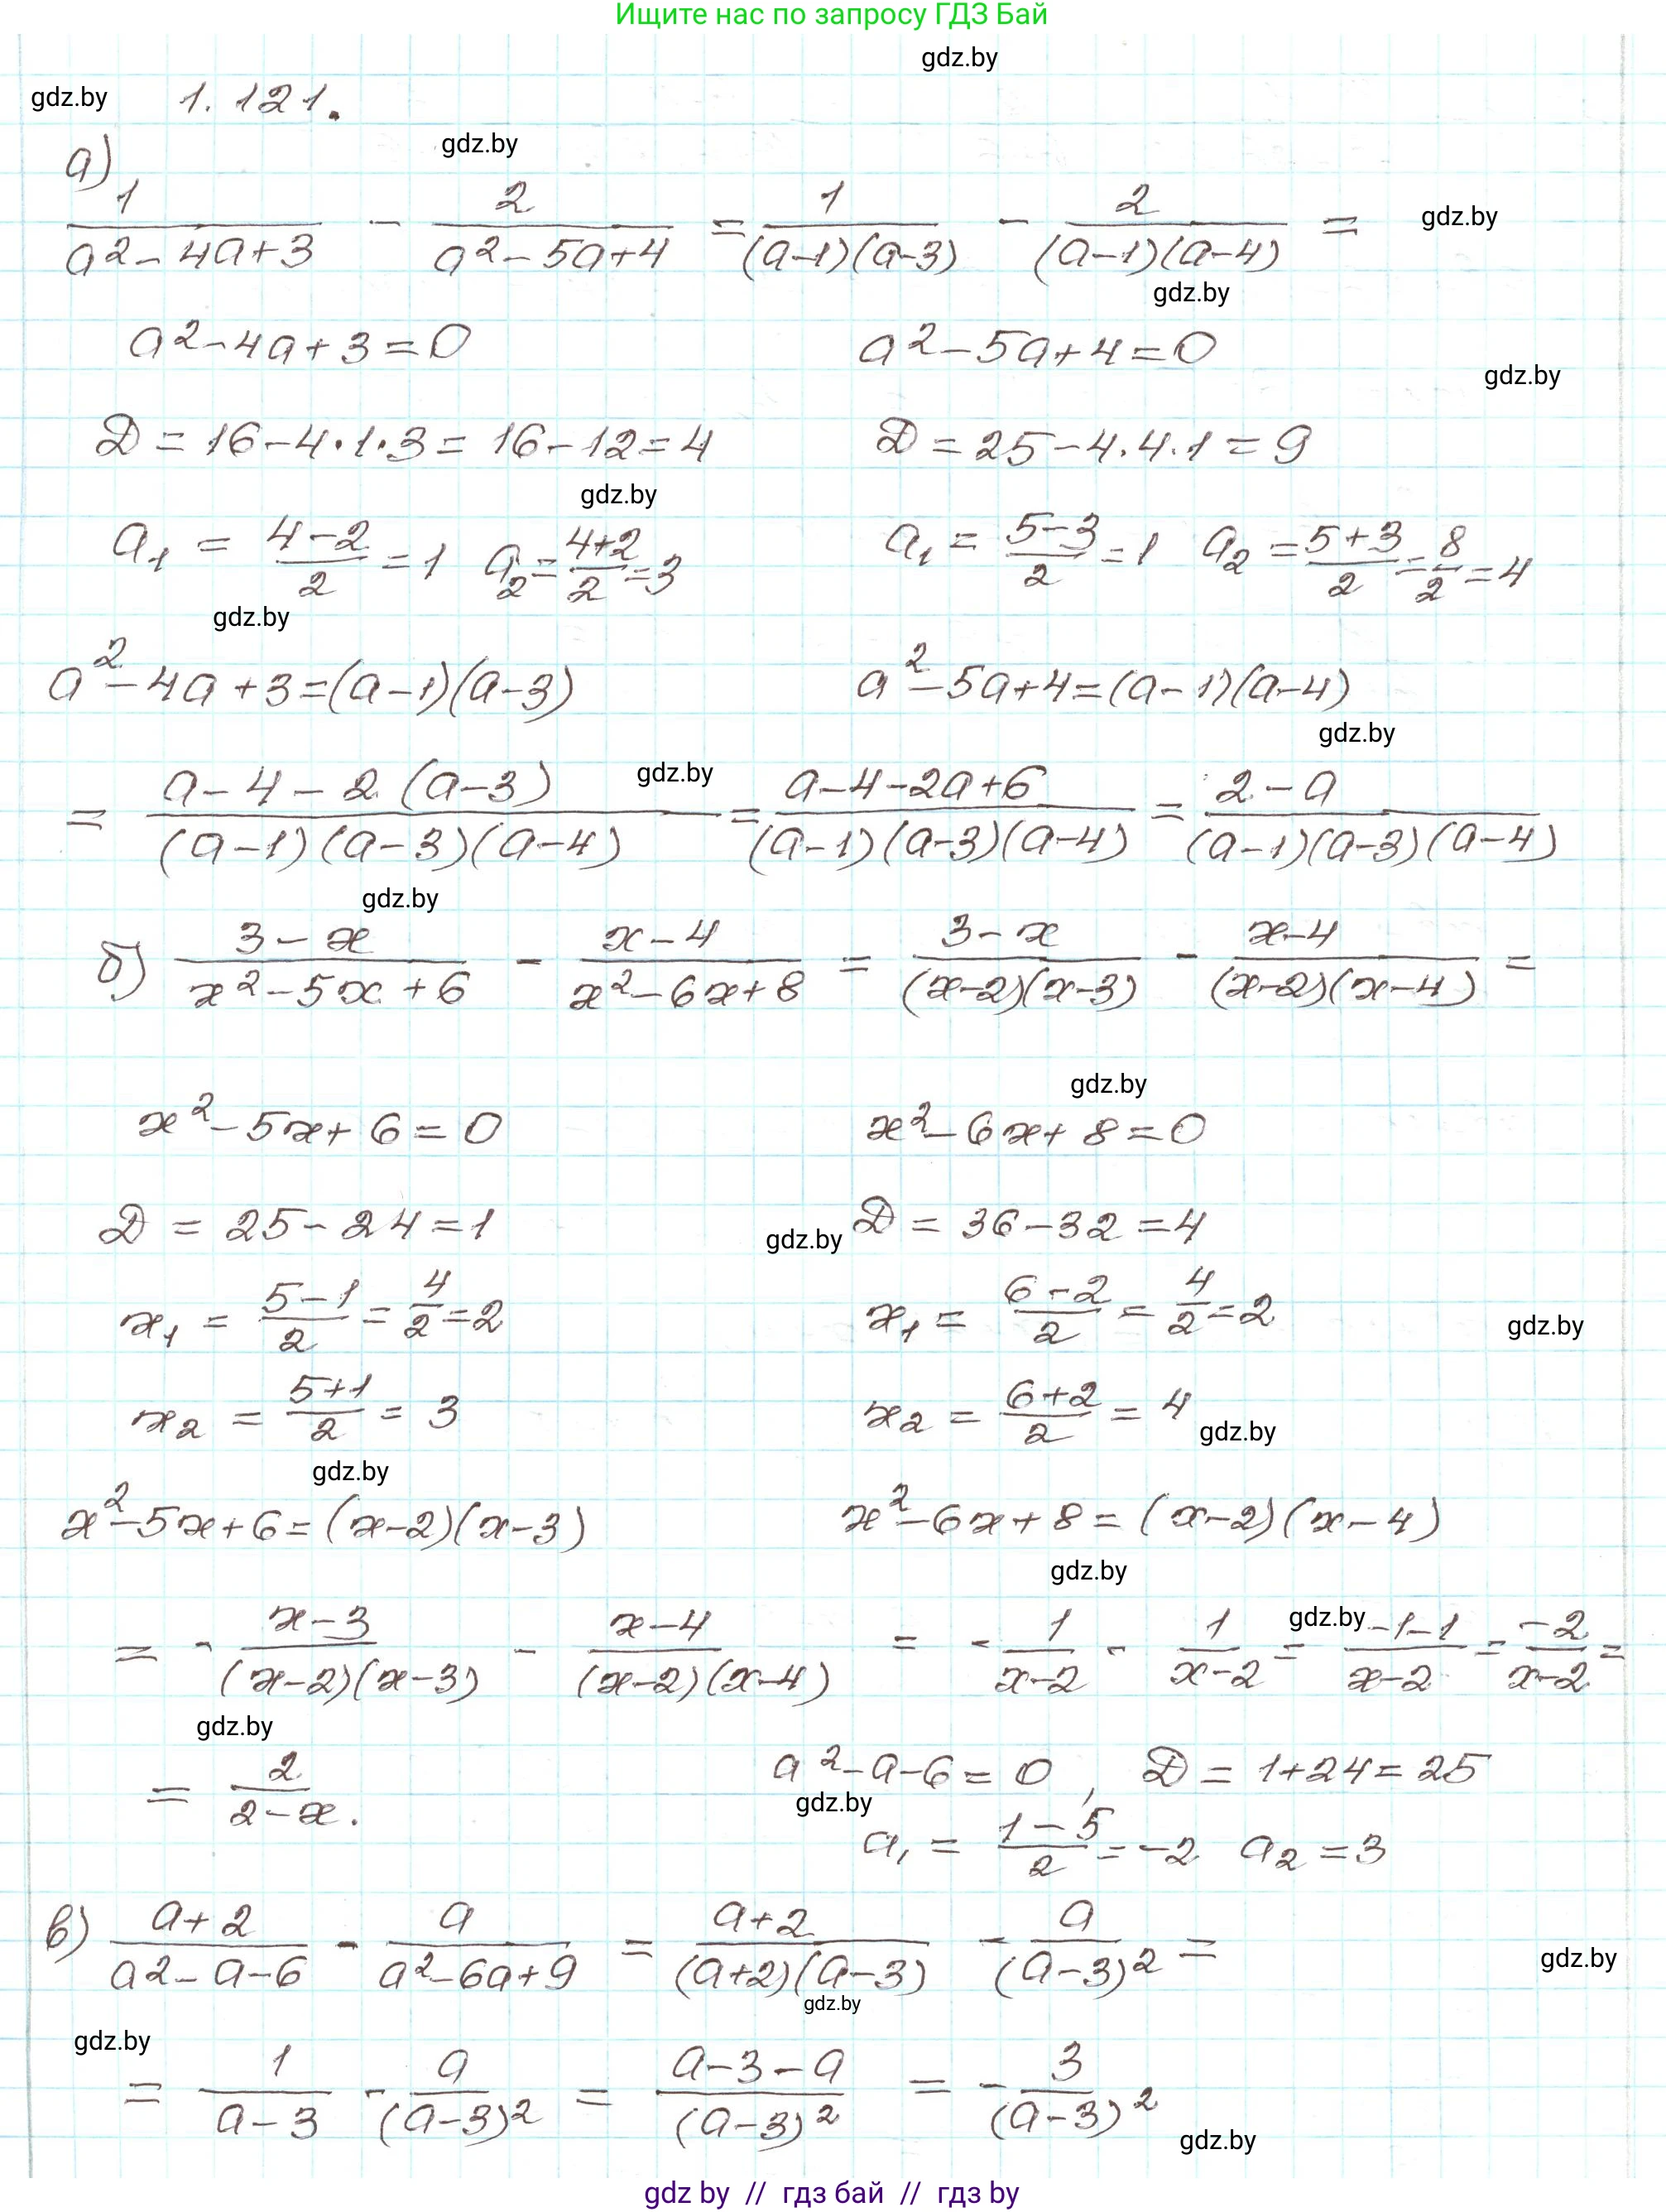 Ищите нас по запросу ГДЗ Бай
gdz.by
gdz.by 1.121.
gdz.by
а)
1/(a²-4a+3) - 2/(a²-5a+4) = 1/((a-1)(a-3)) - 2/((a-1)(a-4)) = gdz.by
gdz.by
a²-4a+3=0 a²-5a+4=0
gdz.by
D=16-4·1·3=16-12=4 D=25-4·4·1=9
gdz.by
a₁ = (4-2)/2 = 1 a₂ = (4+2)/2 = 3 a₁ = (5-3)/2 = 1 a₂ = (5+3)/2 = 8/2 = 4
gdz.by
a²-4a+3=(a-1)(a-3) a²-5a+4=(a-1)(a-4)
gdz.by
gdz.by
= (a-4-2(a-3))/((a-1)(a-3)(a-4)) = (a-4-2a+6)/((a-1)(a-3)(a-4)) = (2-a)/((a-1)(a-3)(a-4))
gdz.by
б) (3-x)/(x²-5x+6) - (x-4)/(x²-6x+8) = (3-x)/((x-2)(x-3)) - (x-4)/((x-2)(x-4)) =
gdz.by
x²-5x+6=0 x²-6x+8=0
D=25-24=1 gdz.by D=36-32=4
x₁ = (5-1)/2 = 4/2 = 2 x₁ = (6-2)/2 = 4/2 = 2 gdz.by
x₂ = (5+1)/2 = 3 x₂ = (6+2)/2 = 4 gdz.by
gdz.by
x²-5x+6=(x-2)(x-3) x²-6x+8=(x-2)(x-4)
gdz.by
gdz.by
= - (x-3)/((x-2)(x-3)) - (x-4)/((x-2)(x-4)) = - 1/(x-2) - 1/(x-2) = (-1-1)/(x-2) = -2/(x-2) =
gdz.by
= 2/(2-x). a²-a-6=0, D=1+24=25
gdz.by
a₁ = (1-5)/2 = -2 a₂=3
в) (a+2)/(a²-a-6) - a/(a²-6a+9) = (a+2)/((a+2)(a-3)) - a/(a-3)² = gdz.by
gdz.by
gdz.by
= 1/(a-3) - a/(a-3)² = (a-3-a)/(a-3)² = - 3/(a-3)²
gdz.by
gdz by // гдз бай // гдз by